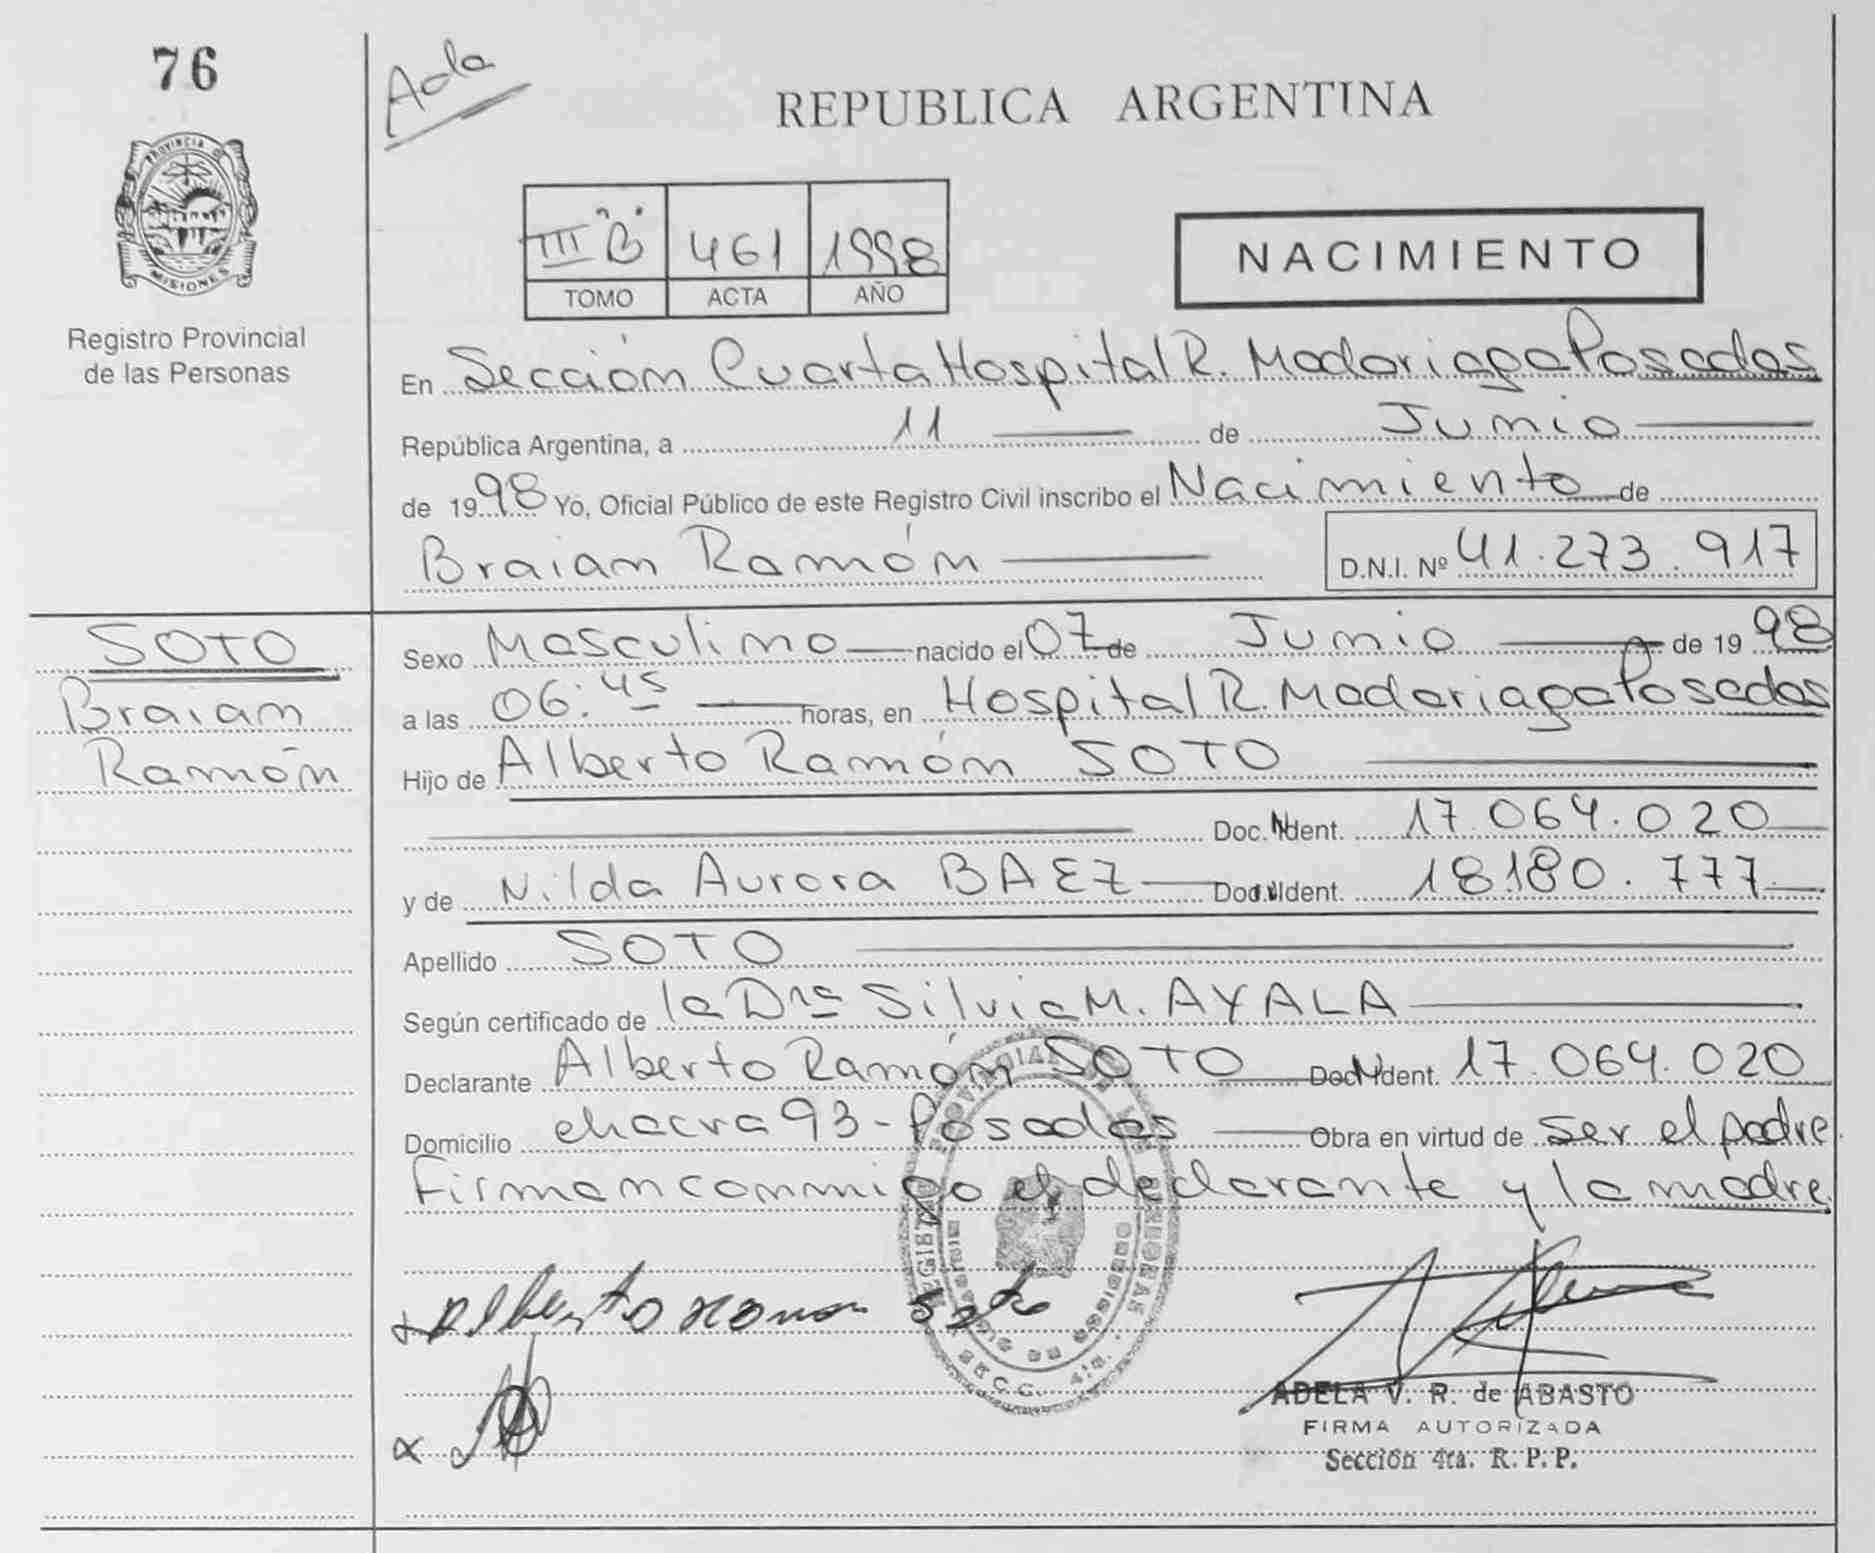 76
Ada
REPUBLICA ARGENTINA
PROVINCIA D
MISIONES
Registro Provincial
de las Personas
III "B" 461 1998
TOMO ACTA AÑO
NACIMIENTO
En Sección Cuarta Hospital R. Madariaga Posadas
República Argentina, a 11 de Junio
de 1998 Yo, Oficial Público de este Registro Civil inscribo el Nacimiento de
Braian Ramón D.N.I. Nº 41.273.917
SOTO
Braian
Ramón
Sexo Masculino nacido el 07 de Junio de 1998
a las 06:45 horas, en Hospital R. Madariaga Posadas
Hijo de Alberto Ramón SOTO
Doc. Ident. 17.064.020
y de Nilda Aurora BAEZ Doc. Ident. 18.180.777
Apellido SOTO
Según certificado de la Dra Silvia M. AYALA
Declarante Alberto Ramón SOTO Doc. Ident. 17.064.020
Domicilio chacra 93 - Posadas Obra en virtud de ser el padre
Firman conmigo el declarante y la madre
x Alberto ramon Soto
x
ADELA V. R. de ABASTO
FIRMA AUTORIZADA
Sección 4ta. R. P. P.